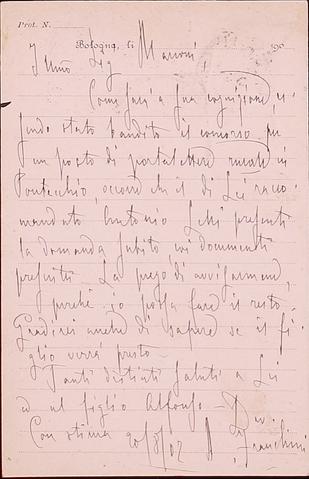 Prot. N.
Bologna, li 190
Illmo Sig Marconi,
Come sarà a sua cognizione es-
sendo stato bandito il concorso per
un posto di portalettere rurale in
Pontecchio, occorre che il di Lei racco-
mandato Antonio presenti
la domanda subito coi documenti
prescritti. La prego di avvisarmene,
perchè io possa fare il resto.
Gradirei anche di sapere se il fi-
glio verrà presto.
Tanti distinti saluti a Lei
ed al figlio Alfonso -
Con stima 20/8/02 Dev.
A Franchini